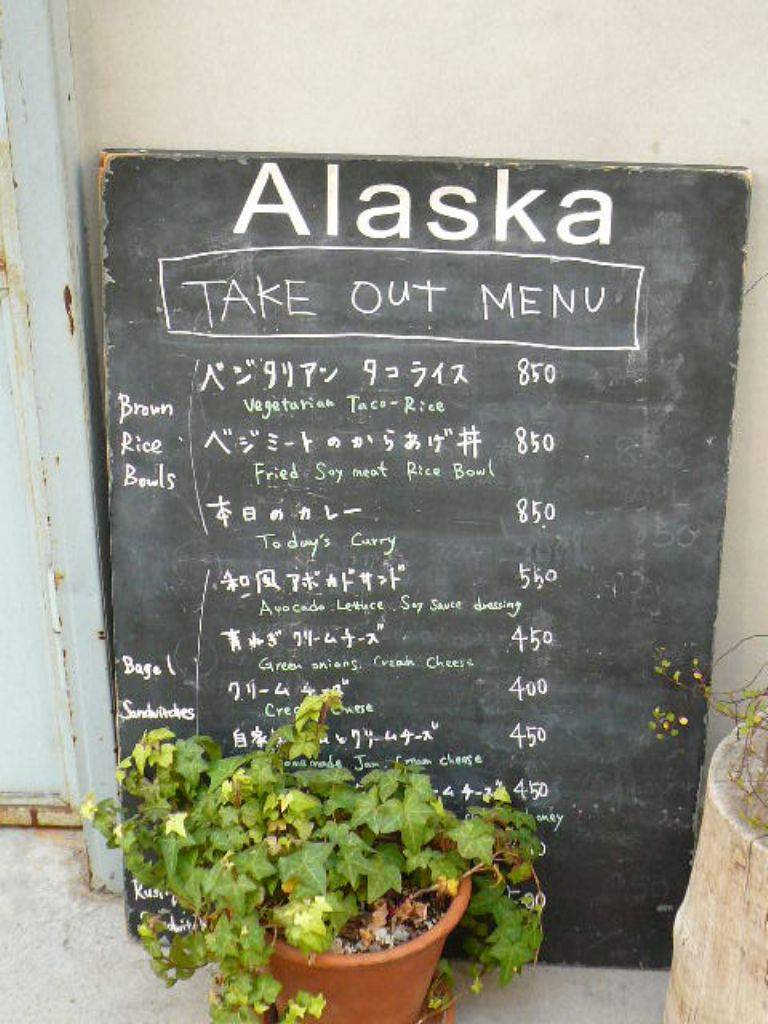 Alaska
TAKE OUT MENU
Brown
Rice
Bowls
ベジタリアン タコライス 850
Vegetarian Taco-Rice
ベジミートのからあげ丼 850
Fried Soy meat Rice Bowl
本日のカレー 850
Today's Curry
Bagel
Sandwiches
和風アボカドサンド 550
Avocado Lettuce Soy Sauce dressing
青ねぎクリームチーズ 450
Green onions, Cream Cheese
クリームチーズ 400
自家 クリームチーズ 450
Jam, Cream cheese
ムチーズ 450